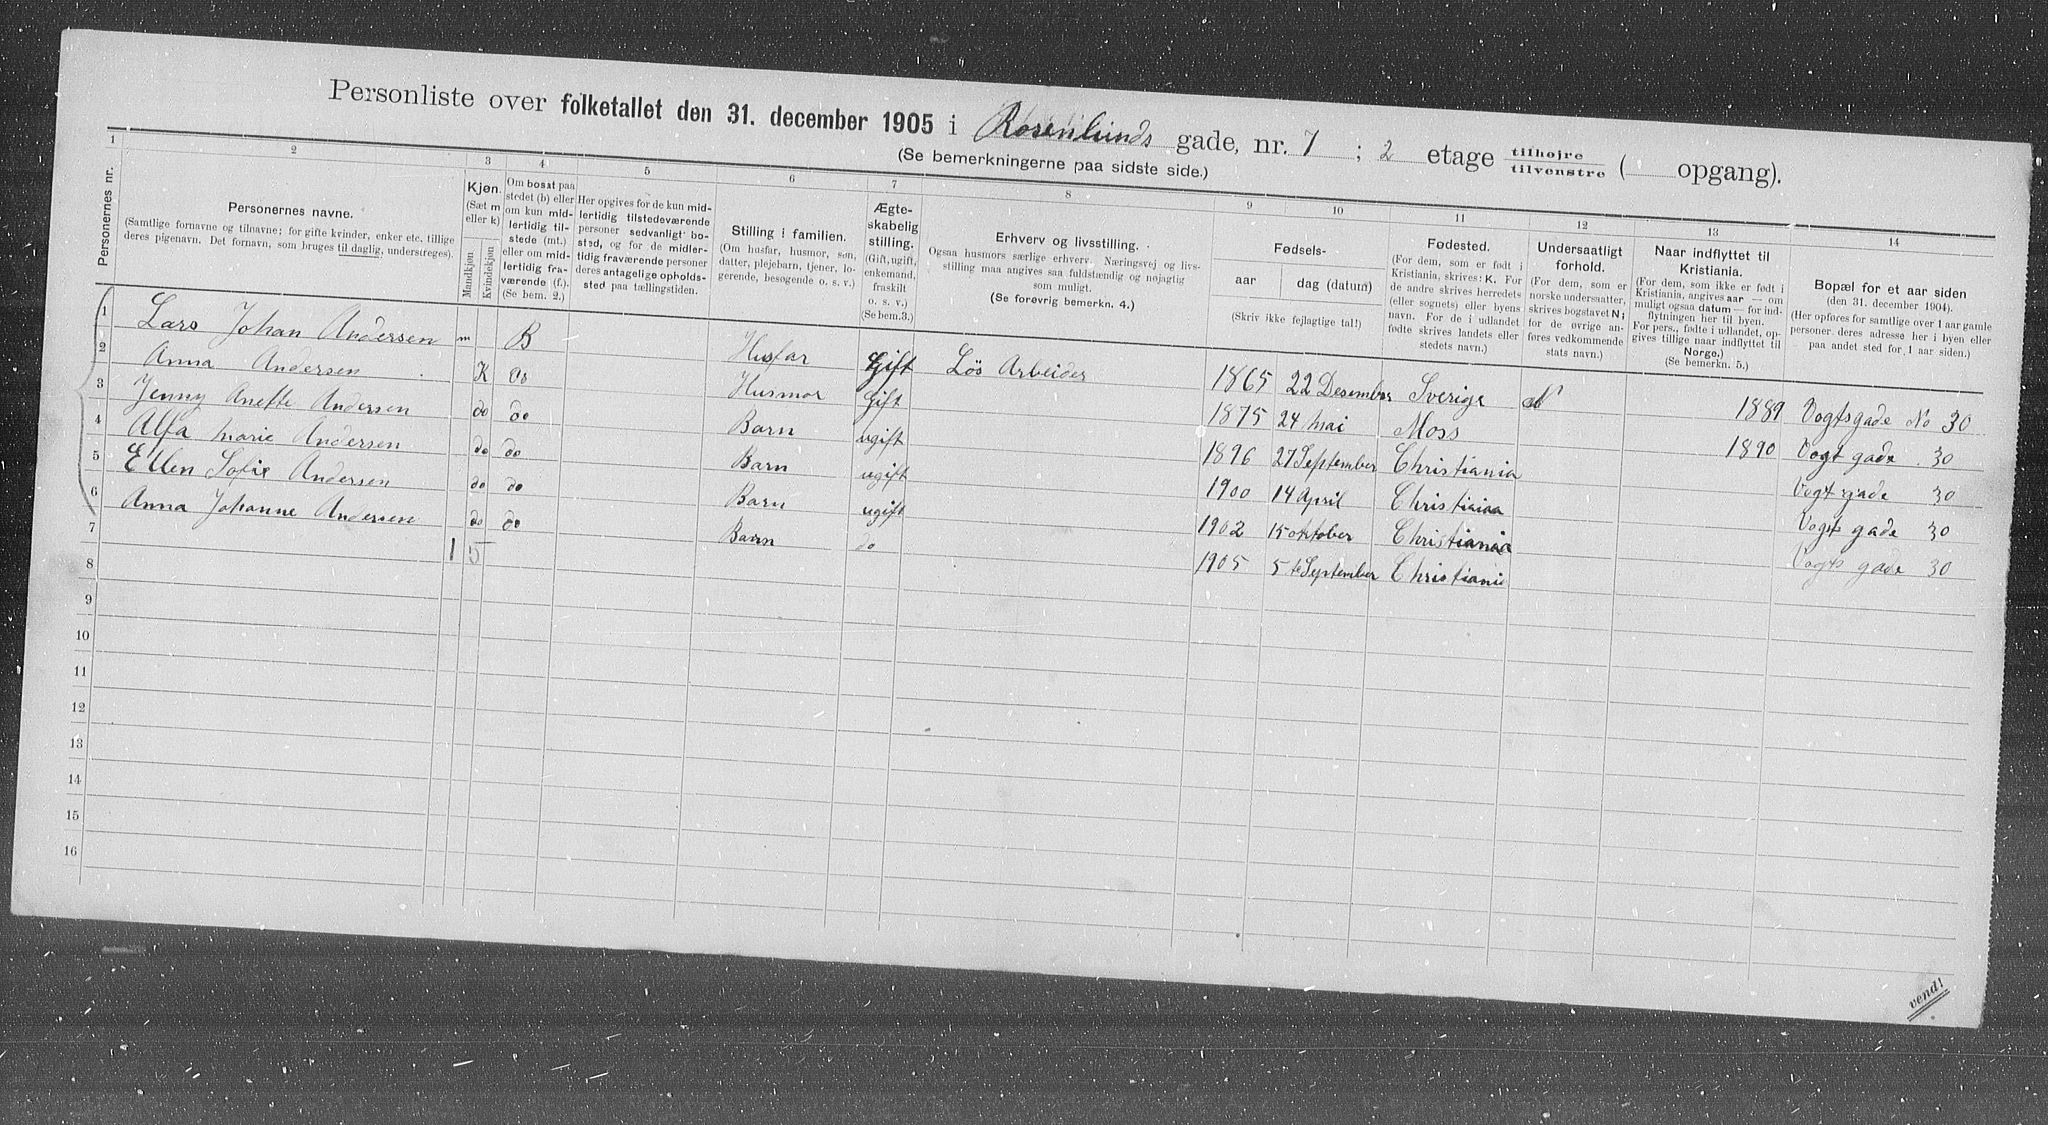 Personliste over folketallet den 31. december 1905 i Rosenlunds gade, nr. 7 ; 2 etage tilhøjre tilvenstre ( opgang).
(Se bemerkningerne paa sidste side.)
1 2 3 4 5 6 7 8 9 10 11 12 13 14
Personernes nr.
Personernes navne.
(Samtlige fornavne og tilnavne; for gifte kvinder, enker etc. tillige
deres pigenavn. Det fornavn, som bruges til daglig, understreges).
Kjøn.
(Sæt m
eller k)
Mandkjøn
Kvindekjøn
Om bosat paa
stedet (b) eller
om kun mid-
lertidig til-
stede (mt.)
eller om mid-
lertidig fra-
værende (f.).
(Se bem. 2.)
Her opgives for de kun mid-
lertidig tilstedeværende
personer sedvanligt bo-
sted, og for de midler-
tidig fraværende personer
deres antagelige opholds-
sted paa tællingstiden.
Stilling i familien.
(Om husfar, husmor, søn,
datter, plejebarn, tjener, lo-
gerende, besøgende o. s. v.)
Ægte-
skabelig
stilling.
(Gift, ugift,
enkemand,
fraskilt
o. s. v.)
(Se bem.3.)
Erhverv og livsstilling.
Ogsaa husmors særlige erhverv. Næringsvej og livs-
stilling maa angives saa fuldstændig og nøjagtig
som muligt.
(Se forøvrig bemerkn. 4.)
Fødsels-
aar dag (datum)
(Skriv ikke fejlagtige tal!)
Fødested.
(For dem, som er født i
Kristiania, skrives: K. For
de andre skrives herredets
(eller sognets) eller byens
navn. For de i udlandet
fødte skrives landets eller
stedets navn.)
Undersaatligt
forhold.
(For dem, som er
norske undersaatter,
skrives bogstavet N;
for de øvrige an-
føres vedkommende
stats navn.)
Naar indflyttet til
Kristiania.
(For dem, som ikke er født i
Kristiania, angives aar — om
muligt ogsaa datum — for ind-
flytningen her til byen.
For pers., fødte i udlandet, op-
gives tillige naar indflyttet til
Norge.)
(Se bemerkn. 5.)
Bopæl for et aar siden
(den 31. december 1904).
(Her opføres for samtlige over 1 aar gamle
personer deres adresse her i byen eller
paa andet sted for 1 aar siden.)
1 Lars Johan Andersen m B Husfar Gift Løs Arbeider 1865 22 Desember Sverige N 1889 Vogtsgade No 30
2 Anna Andersen K do Husmor Gift 1875 24 mai Moss 1890 Vogt gade 30
3 Jenny Anette Andersen do do Barn ugift 1896 27 September Christiania Vogt gade 30
4 Alfa Marie Andersen do do Barn ugift 1900 14 April Christiania Vogts gade 30
5 Ellen Sofie Andersen do do Barn ugift 1902 15 oktober Christiania Vogts gade 30
6 Anna Johanne Andersen do do Barn do 1905 5te September Christiania
7 1 5
8
9
10
11
12
13
14
15
16
vend!